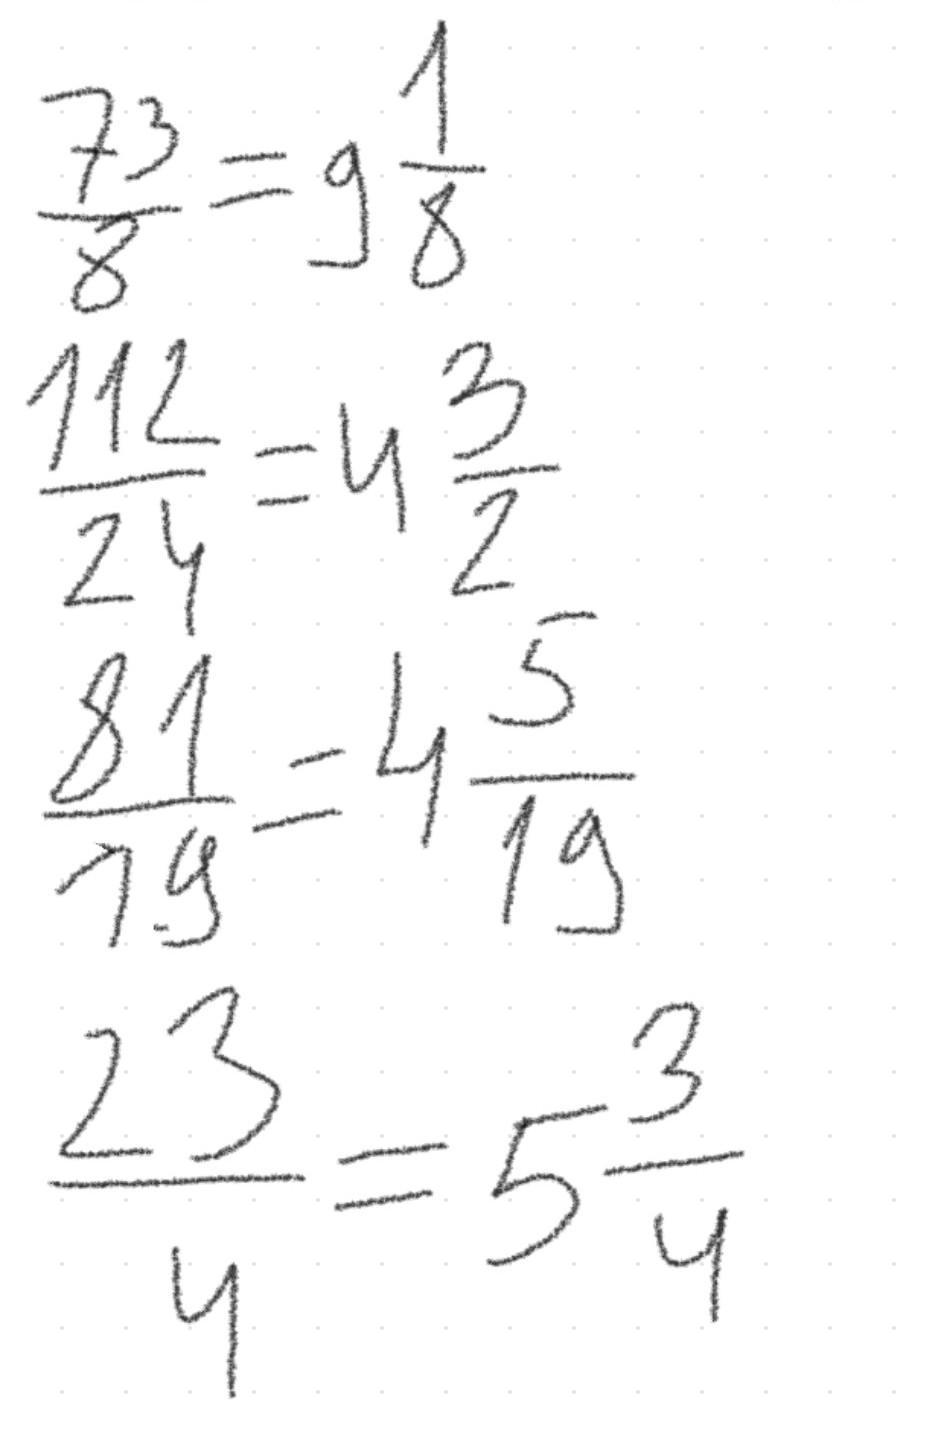 73/8 = 9 1/8
112/24 = 4 3/2
81/19 = 4 5/19
23/4 = 5 3/4